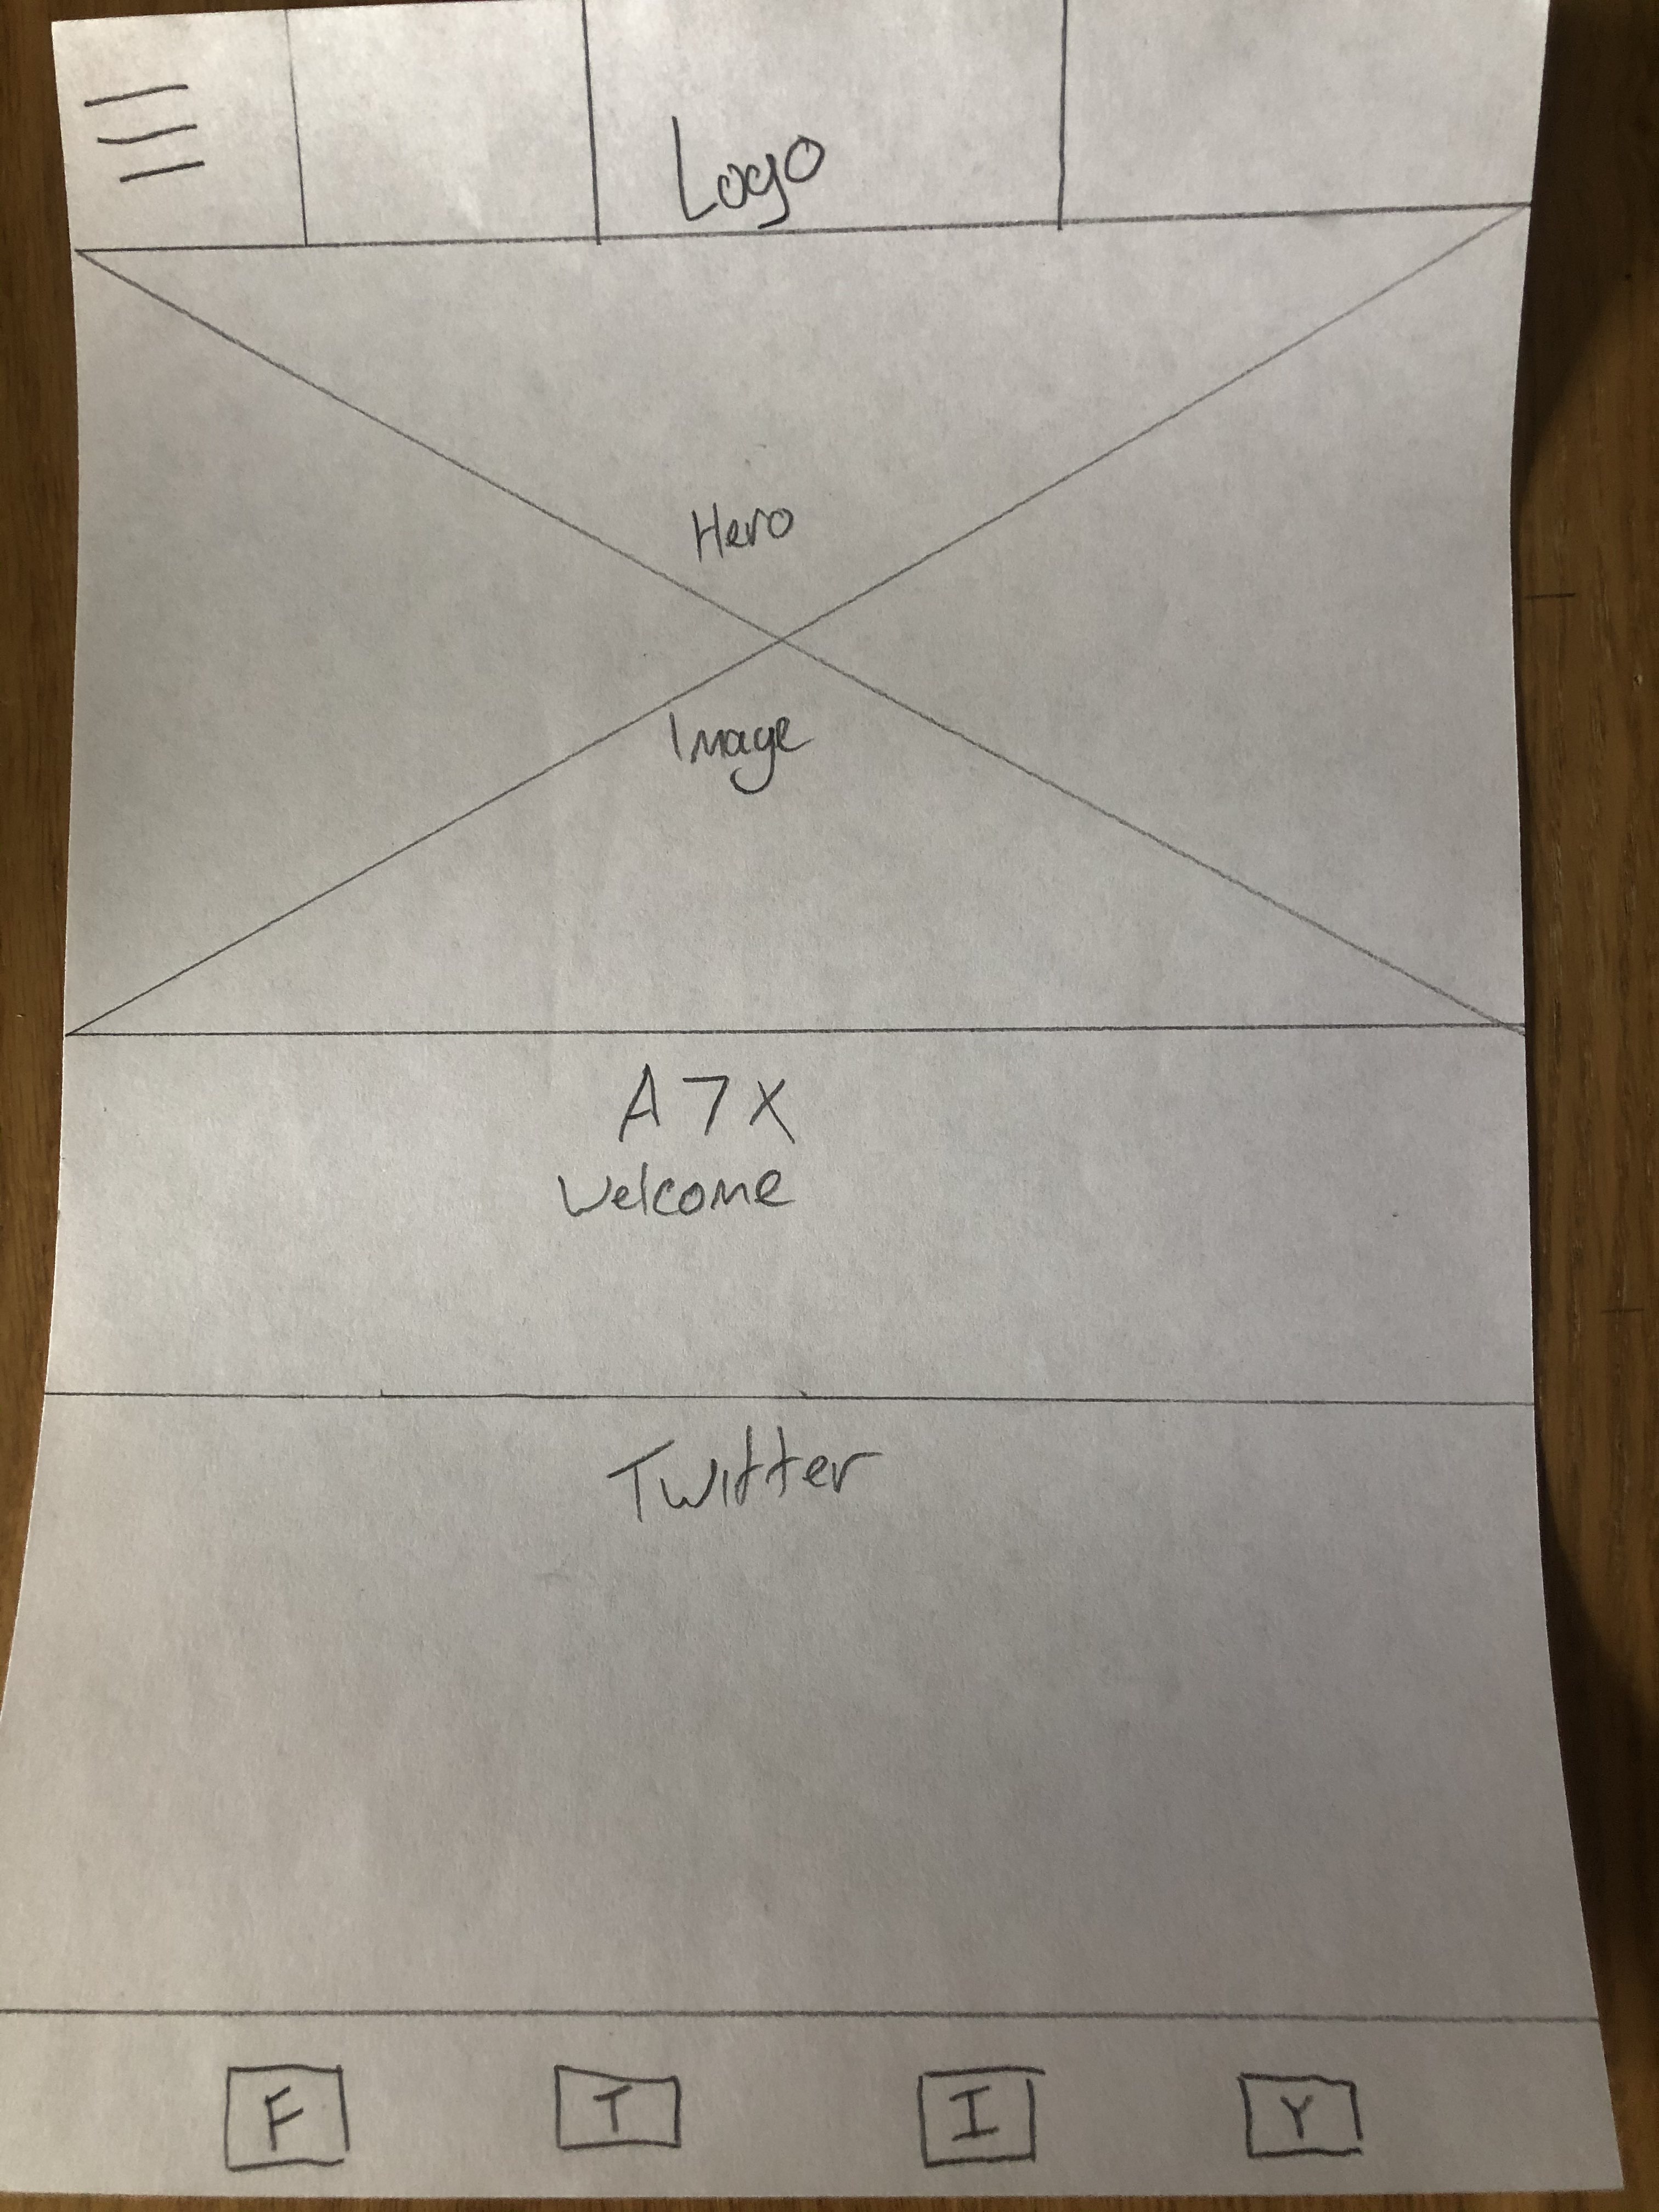 Logo
Hero
Image
A7X
Welcome
Twitter
F T I Y